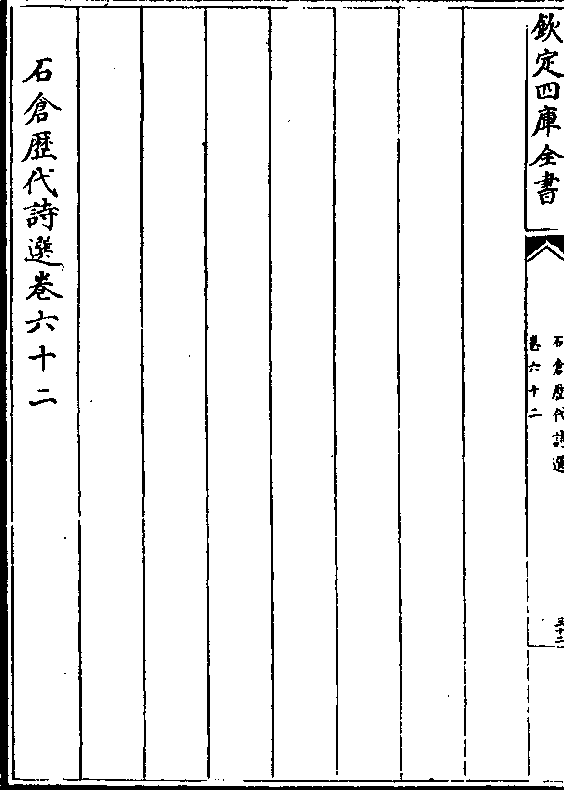 欽定四庫全書
石倉歷代詩選
卷六十二
五十二
石倉歷代詩選卷六十二